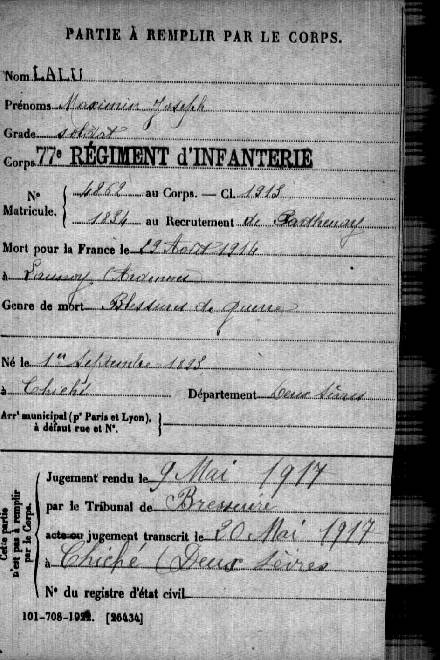 PARTIE À REMPLIR PAR LE CORPS.
Nom LALU
Prénoms Maximin Joseph
Grade soldat
Corps 77e RÉGIMENT d'INFANTERIE
No Matricule. { 4862 au Corps. — Cl. 1913
1834 au Recrutement de Parthenay
Mort pour la France le 29 Août 1914
à Launoy Ardennes
Genre de mort Blessures de guerre
Né le 1er Septembre 1893
à Chiché Département Deux Sèvres
Arrt municipal (pr Paris et Lyon), à défaut rue et No. }
Cette partie n'est pas à remplir par le Corps.
Jugement rendu le 9 Mai 1917
par le Tribunal de Bressuire
acte ou jugement transcrit le 20 Mai 1917
à Chiché (Deux Sèvres
No du registre d'état civil
101-708-1922. [26434]